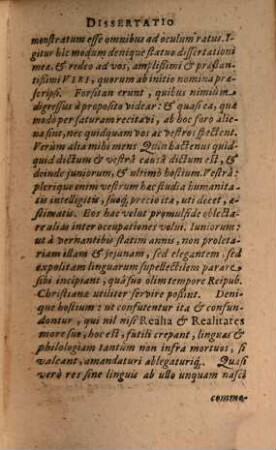 DISSERTATIO
monstratum esse omnibus ad oculum ratus. I-
gitur hic modum denique statuo dissertationi
meæ. & redeo ad vos, amplissimi & præstan-
tissimi VIRI, quorum ab initio nomina præ-
scripsi. Forsitan erunt, quibus nimium
digressus à proposito videar: & quasi ea, quæ
modo per saturam recitavi, ab hoc foro alie-
na sint, nec quidquam vos aut vestros spectent.
Verùm alia mihi mens. Quin hactenus quid-
quid dictum & vestrâ causâ dictum est, &
deinde juniorum, & ultimò hostium. Vestrâ:
plerique enim vestrûm hæc studia humanita-
tis intellegitis, suoq; precio ita, uti decet, æ-
stimatis. Eos hac velut promulside oblecta-
re aliàs inter occupationes volui. Juniorum:
ut à vernantibus statim annis, non proleta-
riam illam & jejunam, sed elegantem, sed
expolitam linguarum supellectilem parare
sibi incipiant, quâ suo olim tempore Reipub.
Christianæ utiliter servire possint. Deni-
que hostium: ut confutentur ita & confun-
dontur, qui nil nisi Realia & Realitates
more suæ, hoc est, futili crepant, linguas &
philologiam tantùm non infra mortuos, si
valeant, amandaturi ablegaturiq. Quasi
verò res sine linguis ab ullo unquam nasci
commo-